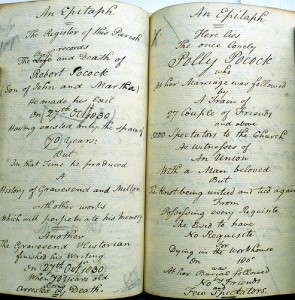 An Epitaph
The Register of this Parish
records
The Life and Death of
Robert Pocock
Son of John and Martha
He made his Exit
On 27th Oct 1830
Having existed only the space
70 Years;
But
In that Time he produced
A
History of Gravesend and Milton
with other works
Which will perpetuate his Memory
Another
The Gravesend Historian
finished his Writing
On 27th Oct 1830
When 70 Years old
Arrested by Death.
An Epitaph
Here lies
The once lovely
Polly Pocock
who
At her Marriage was followed
by
A Train of
27 Couple of Friends
and above
Spectators to the Church
As witnesses of
An Union
With a Man beloved
But
The Knot being untied and tied again
From
Possessing every Requisite
She Lived to have
No Requisite
For
Dying in the Workhouse
On
was
At her Burial followed
by
No Friends
Few Spectators